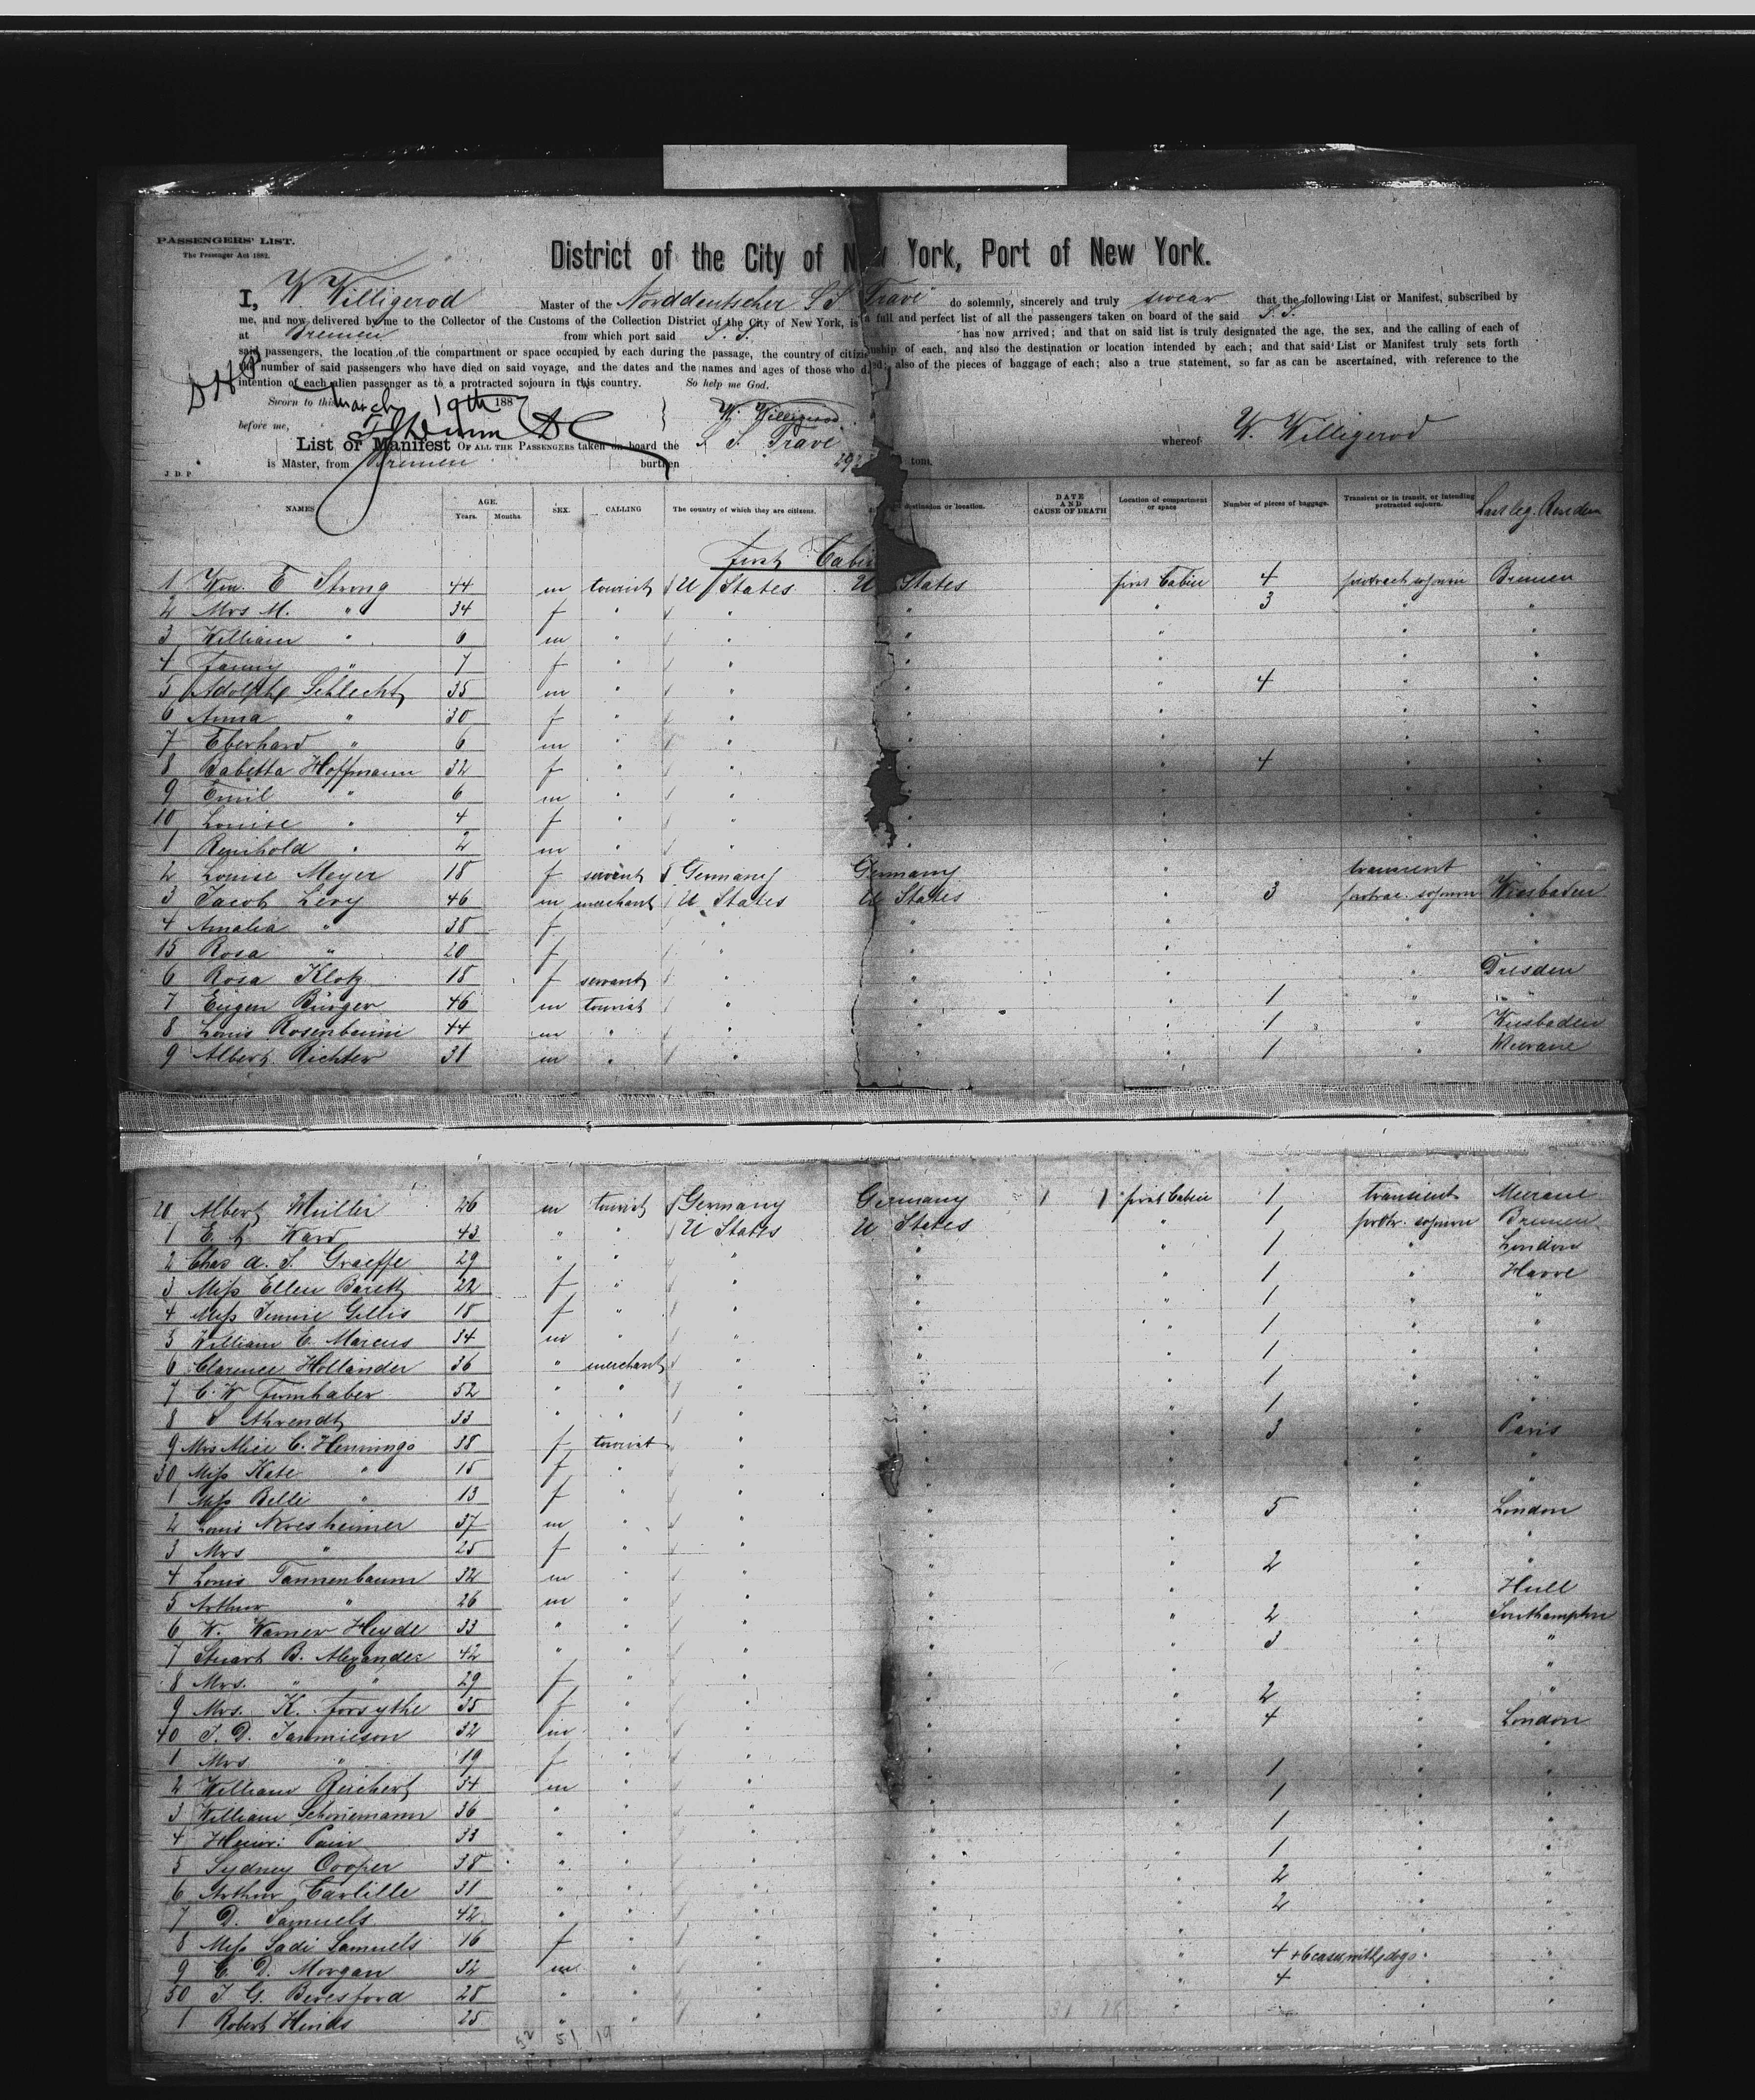 PASSENGERS' LIST.
The Passenger Act 1882.
District of the City of New York, Port of New York.
I, W Willigerod Master of the Norddeutscher S S Trave do solemnly, sincerely and truly swear that the following List or Manifest, subscribed by
me, and now delivered by me to the Collector of the Customs of the Collection District of the City of New York, is a full and perfect list of all the passengers taken on board of the said S. S.
at Bremen from which port said S. S. has now arrived; and that on said list is truly designated the age, the sex, and the calling of each of
said passengers, the location of the compartment or space occupied by each during the passage, the country of citizenship of each, and also the destination or location intended by each; and that said List or Manifest truly sets forth
the number of said passengers who have died on said voyage, and the dates and the names and ages of those who died; also of the pieces of baggage of each; also a true statement, so far as can be ascertained, with reference to the
intention of each alien passenger as to a protracted sojourn in this country. So help me God.
Sworn to this March 19th 1887
before me, W. Willigerod
List or Manifest OF ALL THE PASSENGERS taken on board the S. S. Trave whereof W. Willigerod
is Master, from Bremen burthen tons.
J D P
NAMES AGE. Years. Months. SEX. CALLING The country of which they are citizens. destination or location. DATE AND CAUSE OF DEATH Location of compartment or space Number of pieces of baggage. Transient or in transit, or intending protracted sojourn. Last leg. Residen
First Cabin
1 Wm. E Strong 44 m tourist U States U States first Cabin 4 protract sojourn Bremen
2 Mrs M. " 34 f " " " " 3 " "
3 William " 6 m " " " " " "
4 Fanny " 7 f " " " " " "
5 Adolph Schlecht 35 m " " " " 4 " "
6 Anna " 30 f " " " " " "
7 Eberhard " 6 m " " " " " "
8 Babetta Hoffmann 32 f " " " " 4 " "
9 Emil " 6 m " " " " " "
10 Louise " 4 f " " " " " "
1 Reinhold " 2 m " " " " " "
2 Louise Meyer 18 f servant Germany Germany " transient "
3 Jacob Levy 46 m merchant U States U States " 3 protrac. sojourn Wiesbaden
4 Amalia " 38 f " " " " "
15 Rosa " 20 f " " " " "
6 Rosa Klotz 18 f servant " " " " Dresden
7 Eugen Bürger 46 m tourist " " " 1 " "
8 Louis Rosenbaum 44 m " " " " 1 " Wiesbaden
9 Albert Richter 31 m " " " " 1 " Meerane
20 Albert Müller 26 m tourist Germany Germany first Cabin 1 transient Meerane
1 E. H. Ward 43 " " U States U States " 1 protr. sojourn Bremen
2 Chas A. S. Graeffe 29 " " " " " 1 " London
3 Miss Ellen Barett 22 f " " " " 1 " Havre
4 Miss Jennie Gillis 18 f " " " " 1 " "
5 William E. Marcus 34 m " " " " 1 " "
6 Clarence Hollander 36 " merchant " " " 1 " "
7 C. W. Funnhaber 52 " " " " " 1 " "
8 Ahrendt 33 " " " " " 1 " "
9 Mrs Alice C. Hennings 38 f tourist " " " 3 " Paris
30 Miss Kate " 15 f " " " " " "
1 Miss Belle " 13 f " " " " " "
2 Louis Neresheimer 37 m " " " " 5 " London
3 Mrs " 25 f " " " " " "
4 Louis Tannenbaum 32 m " " " " 2 " "
5 Arthur " 26 m " " " " " Hull
6 W. Warner Heyde 33 " " " " " 2 " Southampton
7 Stuart B. Alexander 42 " " " " " 3 " "
8 Mrs. " " 29 f " " " " " "
9 Mrs. K. Forsythe 35 f " " " " 2 " "
40 J. D. Jammieson 32 m " " " " 4 " London
1 Mrs " 19 f " " " " " "
2 William Reichert 34 m " " " " 1 " "
3 William Schönemann 36 " " " " " 1 " "
4 Heinr: Pain 33 " " " " " 1 " "
5 Sydney Cooper 38 " " " " " 1 " "
6 Arthur Carlille 31 " " " " " 2 " "
7 D. Samuels 42 " " " " " 2 " "
8 Miss Sadi Samuels 16 f " " " " " "
9 C. D. Morgan 32 m " " " " 4 + 6 cases with dogs " "
50 J. G. Beresford 28 " " " " " 4 " "
1 Robert Hinds 25 " " " " " " "
32 51 19